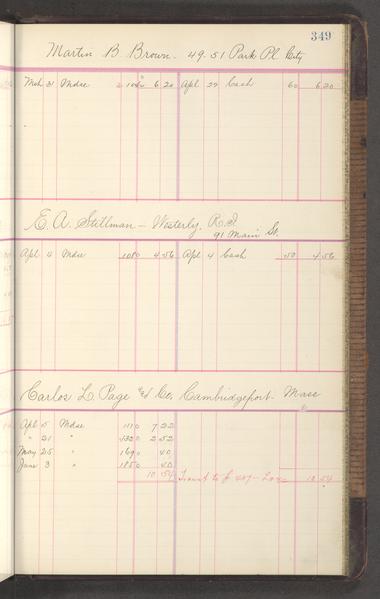 349
Martin B Brown - 49.51 Park Pl City
Mch 31 Mdse 6 20 Apl 27 Cash 60 6 20
E. A. Stillman - Westerly, R.I.
91 Main St.
Apl 4 Mdse 1080 4 56 Apl 4 Cash 50 4 56
Carlos L Page & Co, Cambridgeport Mass
Apl 5 Mdse 1110 7 22
" 21 " 1320 2 52
May 25 " 1690 40
June 3 " 1850 40
10 54 Transf to f 407 - 10 54